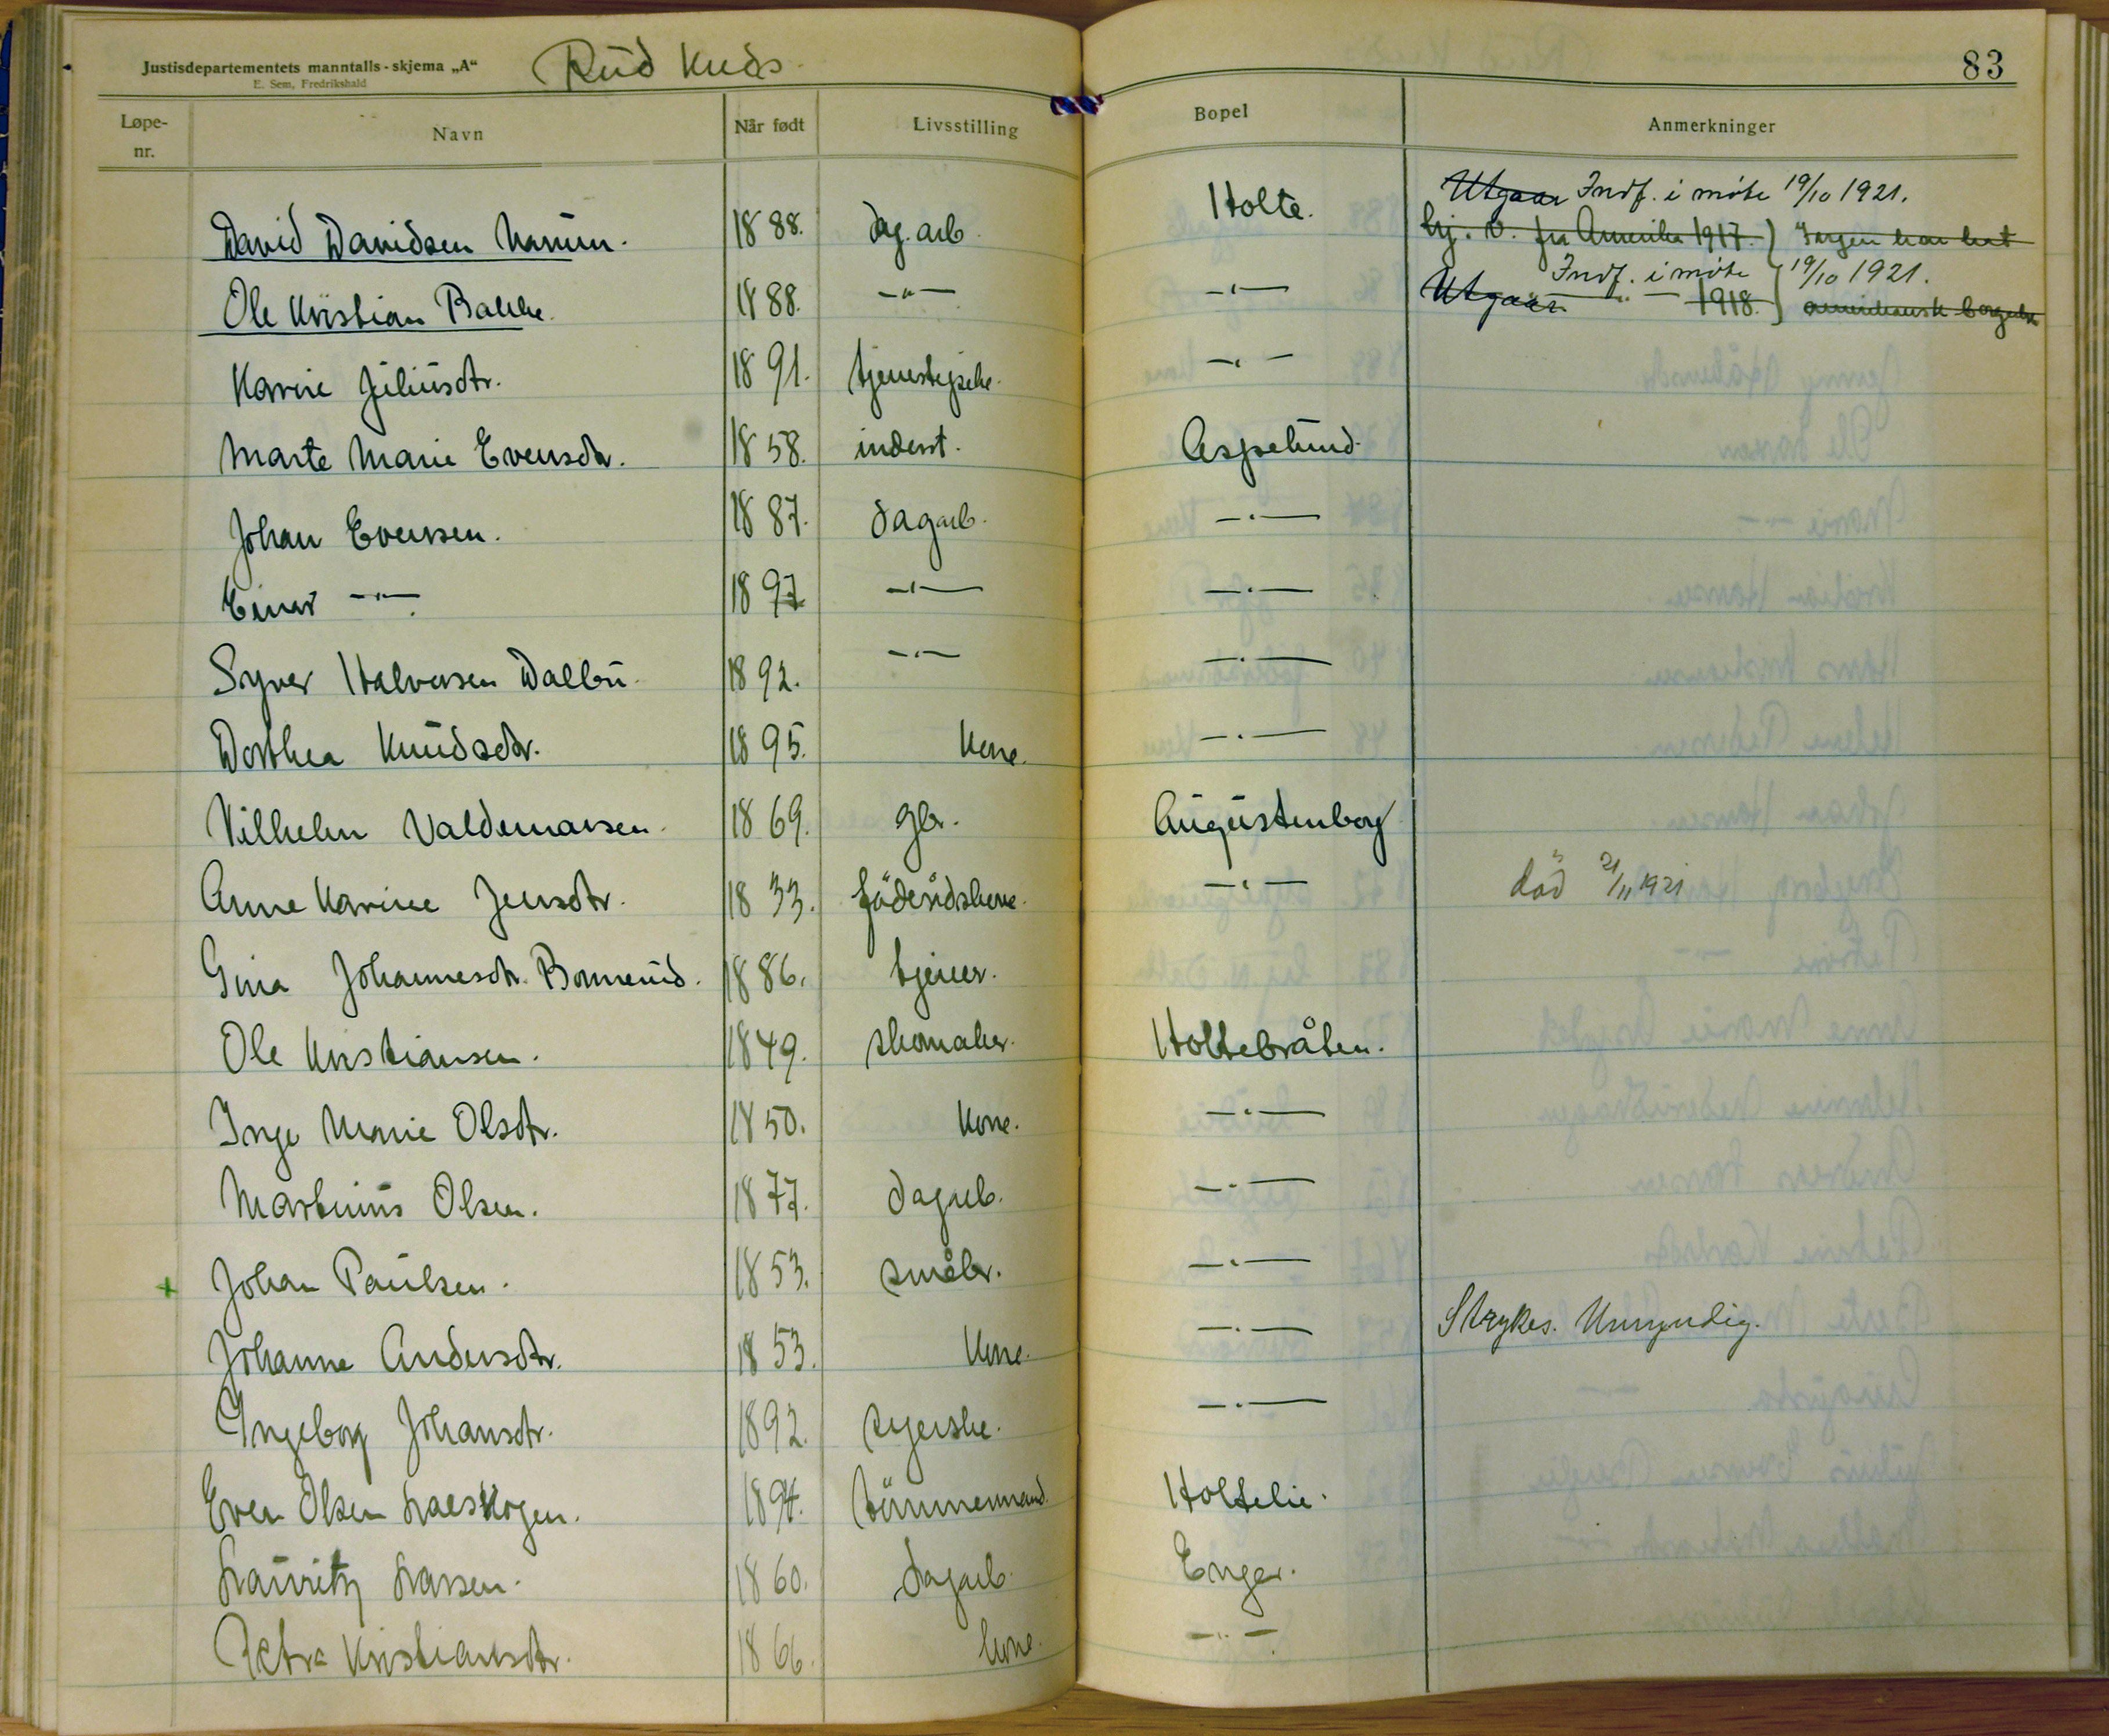 Justisdepartementets manntalls-skjema „A“ Rŭd Kreds. 83
E. Sem, Fredrikshald
Løpe-nr. Navn Når født Livsstilling Bopel Anmerkninger
Utgaar Indf. i møte 19/10 1921.
David Davidsen 1888. dag.arb. Holte. hj. v. fra Amerika 1917. } Ingen har hat
Indf. i møte } 19/10 1921.
Ole Kristian Bakke. 1888. —"— —"— Utgaar —"— 1918. } amerikansk borgerbr
Karine Jŭliŭsdtr. 1891. tjenestepike. —"—
Marte Marie Evensdtr. 1858. inderst. Aspelŭnd.
Johan Evensen. 1887. dagarb. —"—
Einar —"— 1897 —"— —"—
Syver Halvorsen Dalbŭ. 1892. —"— —"—
Dorthea Knŭdsdtr. 1895. Kone. —"—
Vilhelm Valdemarsen. 1869. gbr. Aŭgŭstenborg
Anne Karine Jensdtr. 1833. föderådskone. —"— död 21/11 1921
Gina Johannesdtr. Bonnerŭd. 1886. tjener.
Ole Kristiansen. 1849. skomaker. Holtebråten.
Inge Marie Olsdtr. 1850. Kone. —"—
Martinŭs Olsen. 1877. dagarb. —"—
+ Johan Paŭlsen. 1853. småbr. —"—
Johanne Andersdtr. 1853. Kone. —"— Strykes. Umyndig.
Ingeborg Johansdtr. 1892. syerske. —"—
Even Olsen Laeskogen. 1894. tömmermand. Holtelie.
Laŭritz Larsen. 1860. dagarb. Enger.
Petra Kristiansdtr. 1866. kone. —"—